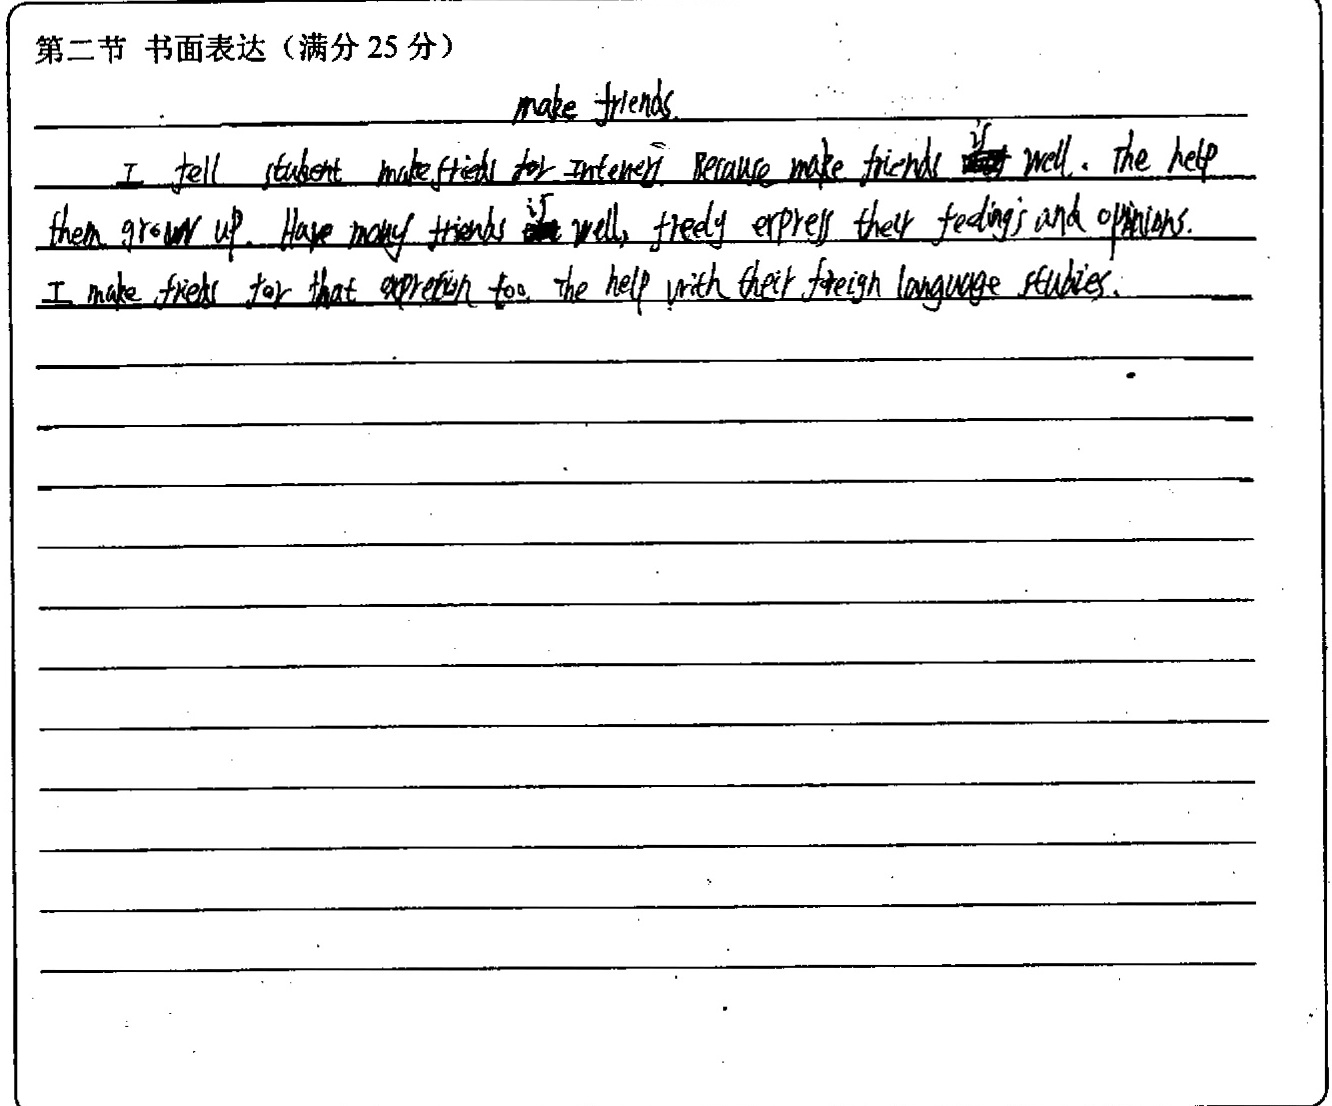 第二节 书面表达（满分 25 分）
make friends.
I tell student make frieds for Internet. Because make friends is well. The help
them grown up. Have many friends is well, freely express their feelings and opinions.
I make frieds for that expretion too. The help with their foreign language studies.